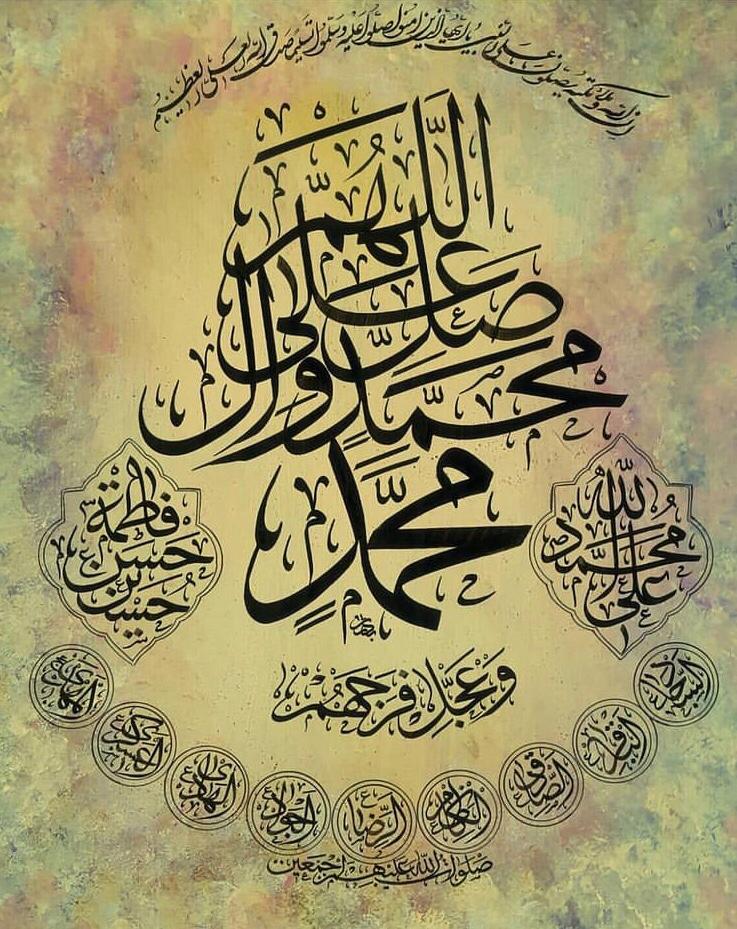 إن الله وملائكته يصلون على النبي يا أيها الذين آمنوا صلوا عليه وسلموا تسليما صدق الله العلي العظيم
اللهم
صل على
محمد وآل
محمد
الله
محمد
علي
فاطمة
حسن
حسين
وعجل فرجهم
السجاد
الباقر
الصادق
الكاظم
الرضا
الجواد
الهادي
العسكري
المهدي
صلوات الله عليهم اجمعين